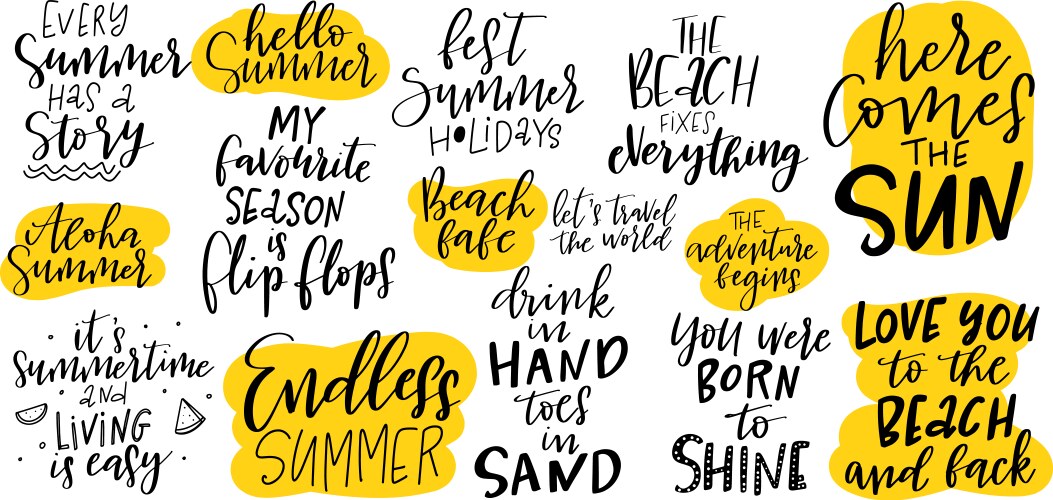 EVERY
Summer
HAS a
Story
hello
Summer
MY
favourite
SEASON
is
flip flops
best
Summer
HOLIDAYS
THE
BEACH
FIXES
everything
here
comes
THE
SUN
Aloha
Summer
Beach
babe
let's travel
the world
THE
adventure
begins
it's
summertime
and
LIVING
is easy
Endless
SUMMER
drink
in
HAND
toes
in
SAND
YOU WERE
BORN
to
SHINE
LOVE YOU
to the
BEACH
and back